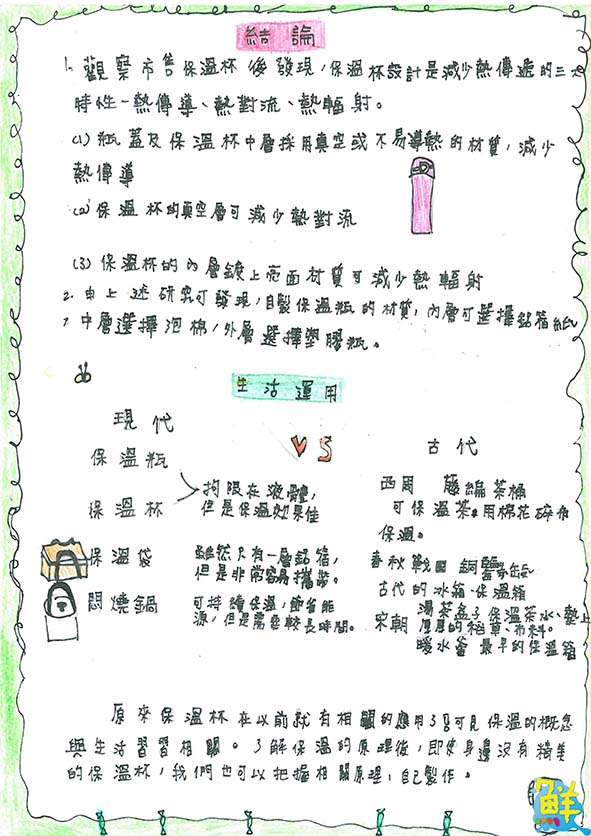 結論
1. 觀察市售保溫杯後發現，保溫杯設計是減少熱傳遞的三大
特性-熱傳導、熱對流、熱輻射。
(1) 瓶蓋及保溫杯中層採用真空或不易導熱的材質，減少
熱傳導
(2) 保溫杯的真空層可減少熱對流
(3) 保溫杯的內層鍍上亮面材質可減少熱輻射
2. 由上述研究可發現，自製保溫瓶的材質，內層可選擇鋁箔紙
，中層選擇泡棉，外層選擇塑膠瓶。
生活運用
現代
VS
古代
保溫瓶
保溫杯
拘限在液體，
但是保溫效果佳
保溫袋
雖然只有一層鋁箔，
但是非常容易攜帶。
悶燒鍋
可持續保溫，節省能
源，但是需要較長時間。
西周 藤編茶桶
可保溫茶。用棉花碎布
保溫。
春秋戰國 銅
古代的冰箱、保溫箱
宋朝 湯茶盒子保溫茶水、墊上
厚厚的稻草、布料。
暖水釜 最早的保溫箱
原來保溫杯在以前就有相關的應用了！可見保溫的概念
與生活習習相關。了解保溫的原理後，即使身邊沒有精美
的保溫杯，我們也可以把握相關原理，自己製作。
鮮